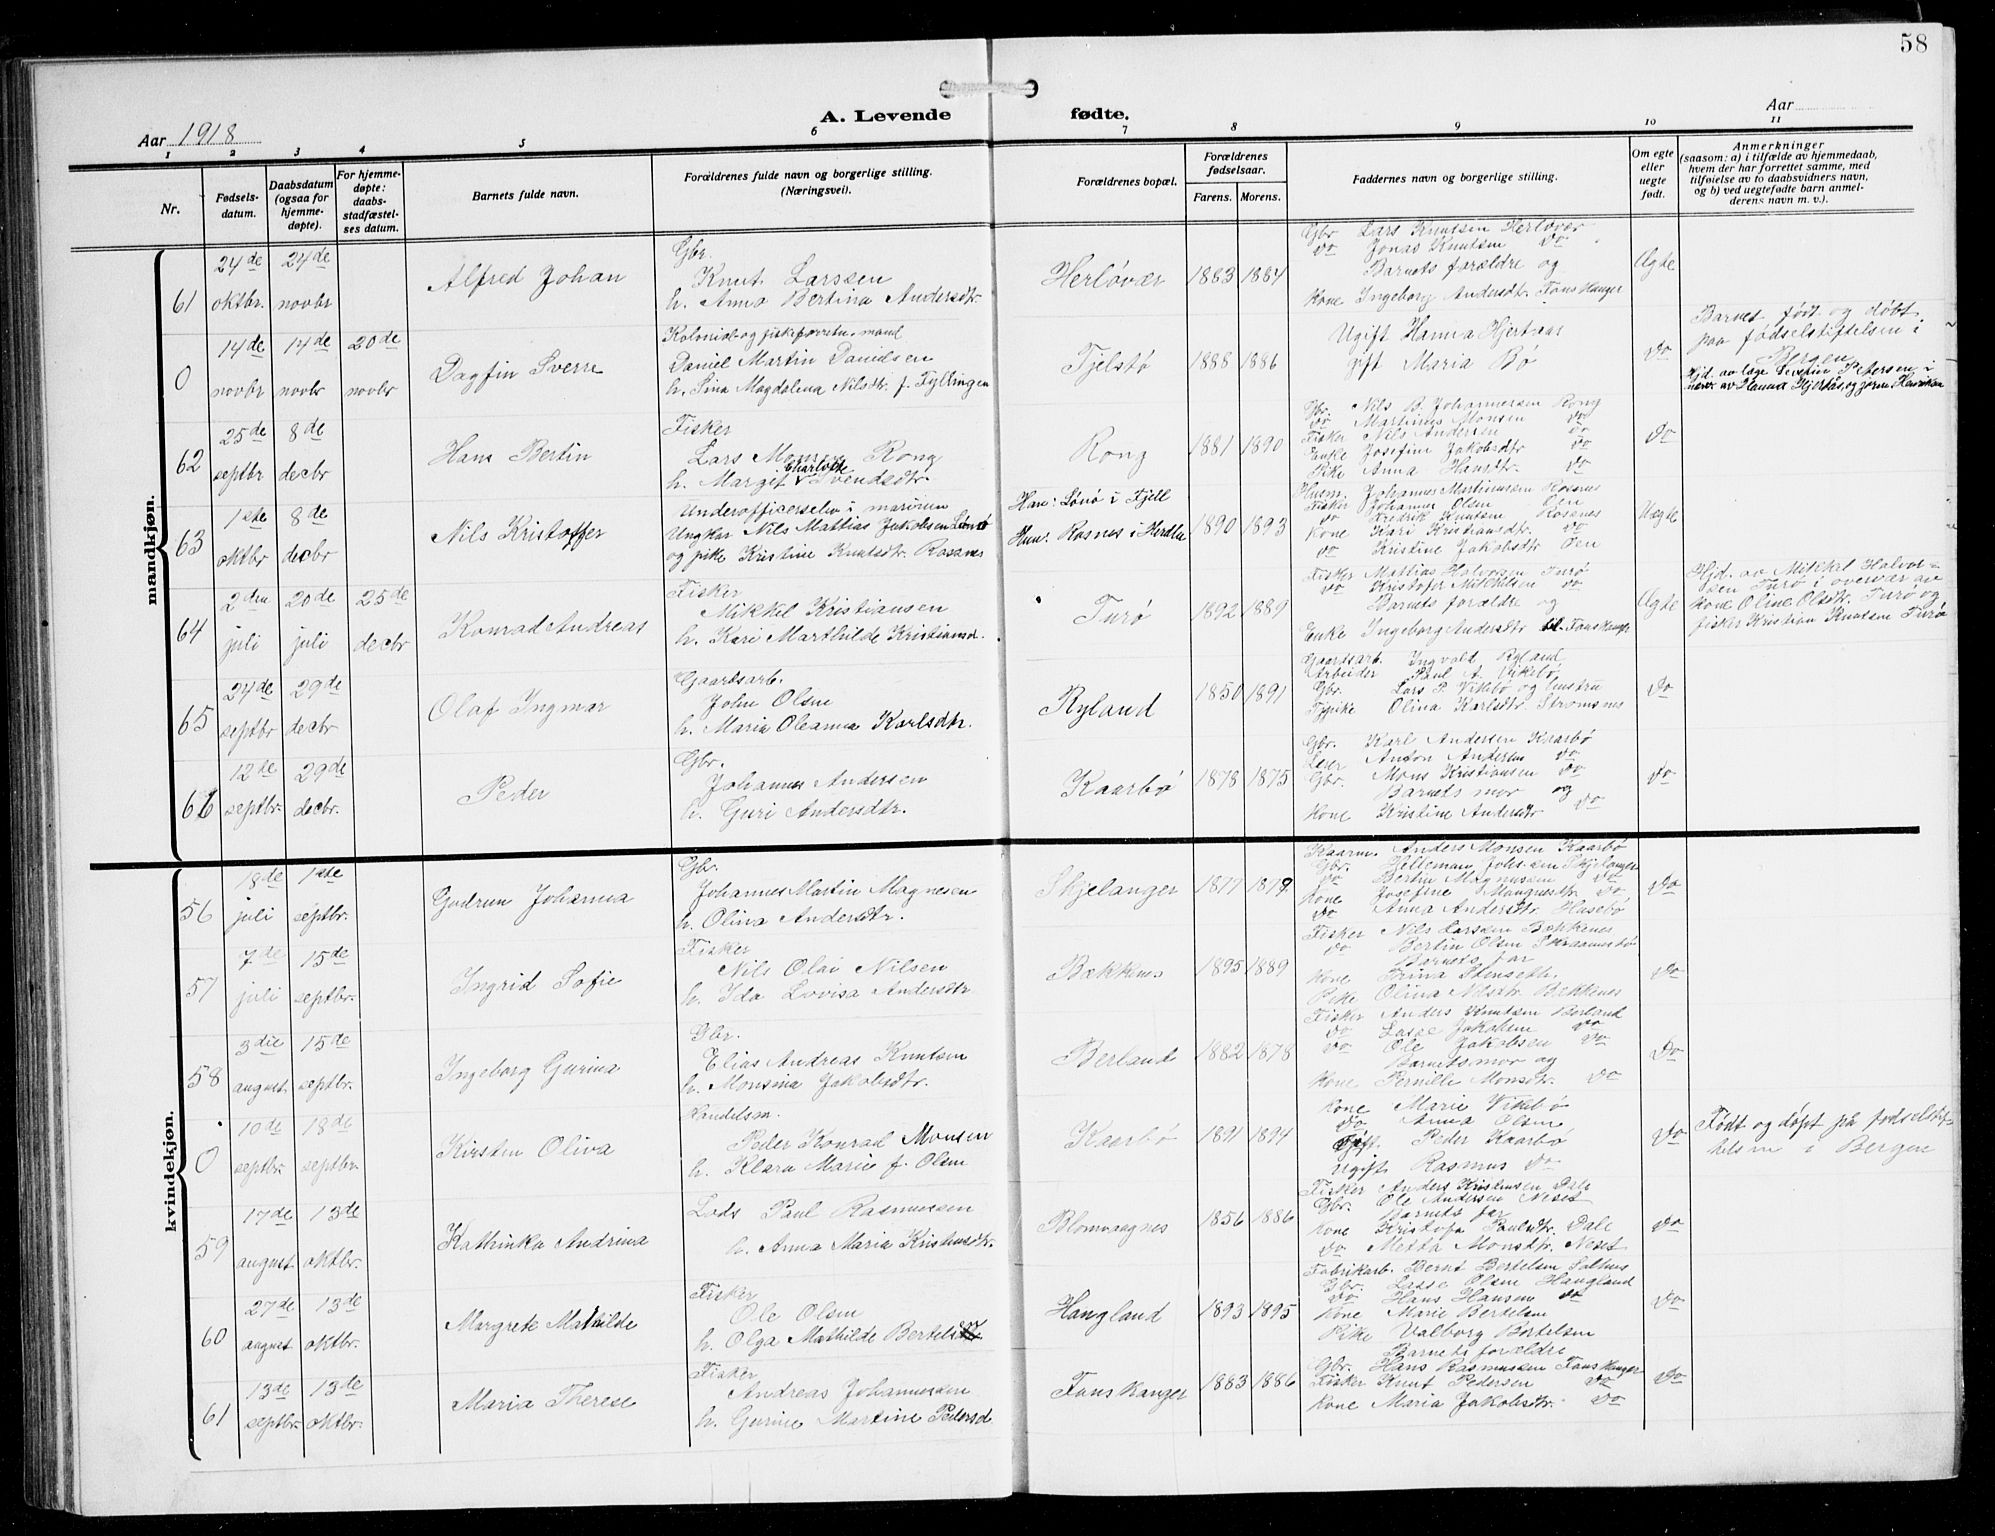 58
A. Levende fødte.
Aar 1918
Aar
1 2 3 4 5 6 7 8 9 10 11
Nr.
Fødsels-
datum.
Daabsdatum
(ogsaa for
hjemme-
døpte).
For hjemme-
døpte:
daabs-
stadfæstel-
ses datum.
Barnets fulde navn.
Forældrenes fulde navn og borgerlige stilling.
(Næringsvei).
Forældrenes bopæl.
Forældrenes
fødselsaar.
Farens. Morens.
Faddernes navn og borgerlige stilling.
Om egte
eller
uegte
født.
Anmerkninger
(saasom: a) i tilfælde av hjemmedaab,
hvem der har forrettet samme, med
tilføielse av to daabsvidners navn,
og b) ved uegtefødte barn anmel-
derens navn m. v.).
mandkjøn.
61
24de
oktbr.
24de
novbr
Alfred Johan
Gbr.
Knut Larssen
h. Anna Bertina Andersdtr.
Herløvær
1883 1884
Gbr Lars Knutsen Herløvær
do Jonas Knutsen do
Barnets forældre og
Kone Ingeborg Andersdtr. Fonskanger
Ægte
0
14de
novbr
14de
novbr
20de
novbr
Dagfin Sverre
Kolonial og fiskeforretn. mand
Daniel Martin Danielsen
h. Sina Magdalena Nilsdtr. f. Fyllingen
Tjelstø
1888 1886
Ugift Hanna Hjertaas
Gift Maria Bø
do
Barnet født og døbt
paa fødselstiftelsen i
Bergen
Hjd. av læge Severin Petersen i
nærv. av Hanna Hjertås, og jorm. Henriksen
62
25de
septbr
8de
decbr
Hans Bertin
Fisker
Lars Monsen Rong
Charlotte
h. Margit Svendsdtr.
Rong
1881 1890
Gbr. Nils B. Johannessen Rong
do Martinus Monsen do
Fisker Nils Andersen do
Enke Josefine Jakobsdtr do
Pike Anna Hansdtr. do
do
63
1ste
oktbr
8de
decbr
Nils Kristoffer
Underofficerselev i marinen
Ungkar Nils Mattias Jakobsen Lønø
og pike Kristine Knutsdtr. Rosnes
Han: Lønø i Fjell
Hun: Rosnes i Herdla
1890 1893
Husm. Johannes Martinussen Rosnes
Fisker Johannes Olsen Øen
do Fredrik Knutsen Rosnes
Kone Kari Kristiansdtr. do
do Kristine Jakobsdtr Øen
Uegte
64
2den
juli
20de
juli
25de
decbr
Konrad Andreas
Fisker
Mikkel Kristiansen
h. Kari Marthilde Kristiansd.
Turø
1892 1889
Fisker Mattias Halvorsen Turø
do Kristofer Mikkelsen do
Barnets forældre og
Enke Ingeborg Andersdtr Fonskanger
Ægte
Hjd. av Mikkel Halvor-
sen Turø i overvær av
Kone Oline Olsdtr. Turø og
fisker Kristian Knutsen Turø
65
24de
septbr
29de
decbr
Olaf Ingmar
Gaardsarb.
John Olsen
h. Maria Oleanna Karlsdtr.
Ryland
1850 1891
Gaardsarb. Ingvald Ryland
Arbeider Paul A. Vikebø
Gbr. Lars P. Vikebø og hustru
Tjpike Olina Karlsdtr. Stromsnes
do
66
12de
septbr.
29de
decbr.
Peder
Gbr.
Johannes Andersen
h. Guri Andersdtr.
Kaarbø
1878 1875
Gbr. Karl Andersen Kaarbø
Leier Anton Andersen do
Gbr. Mons Kristiansen do
Barnets mor og
Kone Kristine Andersdtr do
do
kvindekjøn.
56
18de
juli
1ste
septbr.
Gudrun Johanna
Gbr.
Johannes Martin Magnesen
h. Olina Andersdtr.
Skjelanger
1877 1879
Kaarm. Anders Monsen Kaarbø
Gbr. Helleman Johssen Skjelanger
do Bertin Magnusen do
Kone Josefine Mangnesdtr. do
do Anna Andersdtr. Husebø
do
57
7de
juli
15de
septbr.
Ingrid Sofie
Fisker
Nils Olai Nilsen
h. Ida Lovisa Andersdtr
Bækknes
1895 1889
Fisker Nils Larssen Bækkenes
do Bertin Olsen
Barnets far
Kone Trina Stenseth.
Pike Olina Nilsdtr. Bækkenes
do
58
3die
august.
15de
septbr.
Ingeborg Gurina
Gbr.
Elias Andreas Knutsen
h. Monsina Jakobsdtr.
Berland
1882 1878
Fisker Anders Knutsen Berland
do Lasse Jakobsen do
do Ole Jakobsen do
Barnets mor og
Kone Pernille Monsdtr. do
do
0
10de
septbr
18de
septbr
Kirsten Oliva
Handelsm.
Peder Konrad Monsen
h. Klara Marie f. Olsen
Kaarbø
1891 1894
Kone Marie Vikebø
do Anna Olsen
Gift. Peder Kaarbø
Ugift Rasmus do
do
Født og døpt på fødselstif-
telsen i Bergen
59
17de
august
13de
oktbr.
Kathinka Andrina
Lods Paul Rasmussen
h. Anna Maria Kristiansdtr.
Blomvaagnes
1856 1886
Fisker Anders Kristensen Dale
Gbr. Ole Andersen Neset
Barnets far
Kone Kristofa Paulsdtr. Dale
do Metta Monsdtr. Neset
do
60
27de
august
13de
oktbr.
Margrete Mathilde
Fisker
Ole Olsen
h. Olga Mathilde Bertelsen
Hangland
1893 1895
Fabrikarb. Bernt Bertelsen Salhus
Gbr. Lasse Olsen Hangland
do Hans Hansen do
Kone Marie Bertelsen
Pike Valborg Bertelsen
Barnets forældre
do
61
13de
septbr.
13de
oktbr.
Maria Therese
Fisker
Andreas Johannessen
h. Gurine Martine Pedersd
Fonskanger
1883 1886
Gbr. Hans Rasmussen Fonskanger
Fisker Knut Pedersen do
Kone Maria Jakobsdtr. do
do